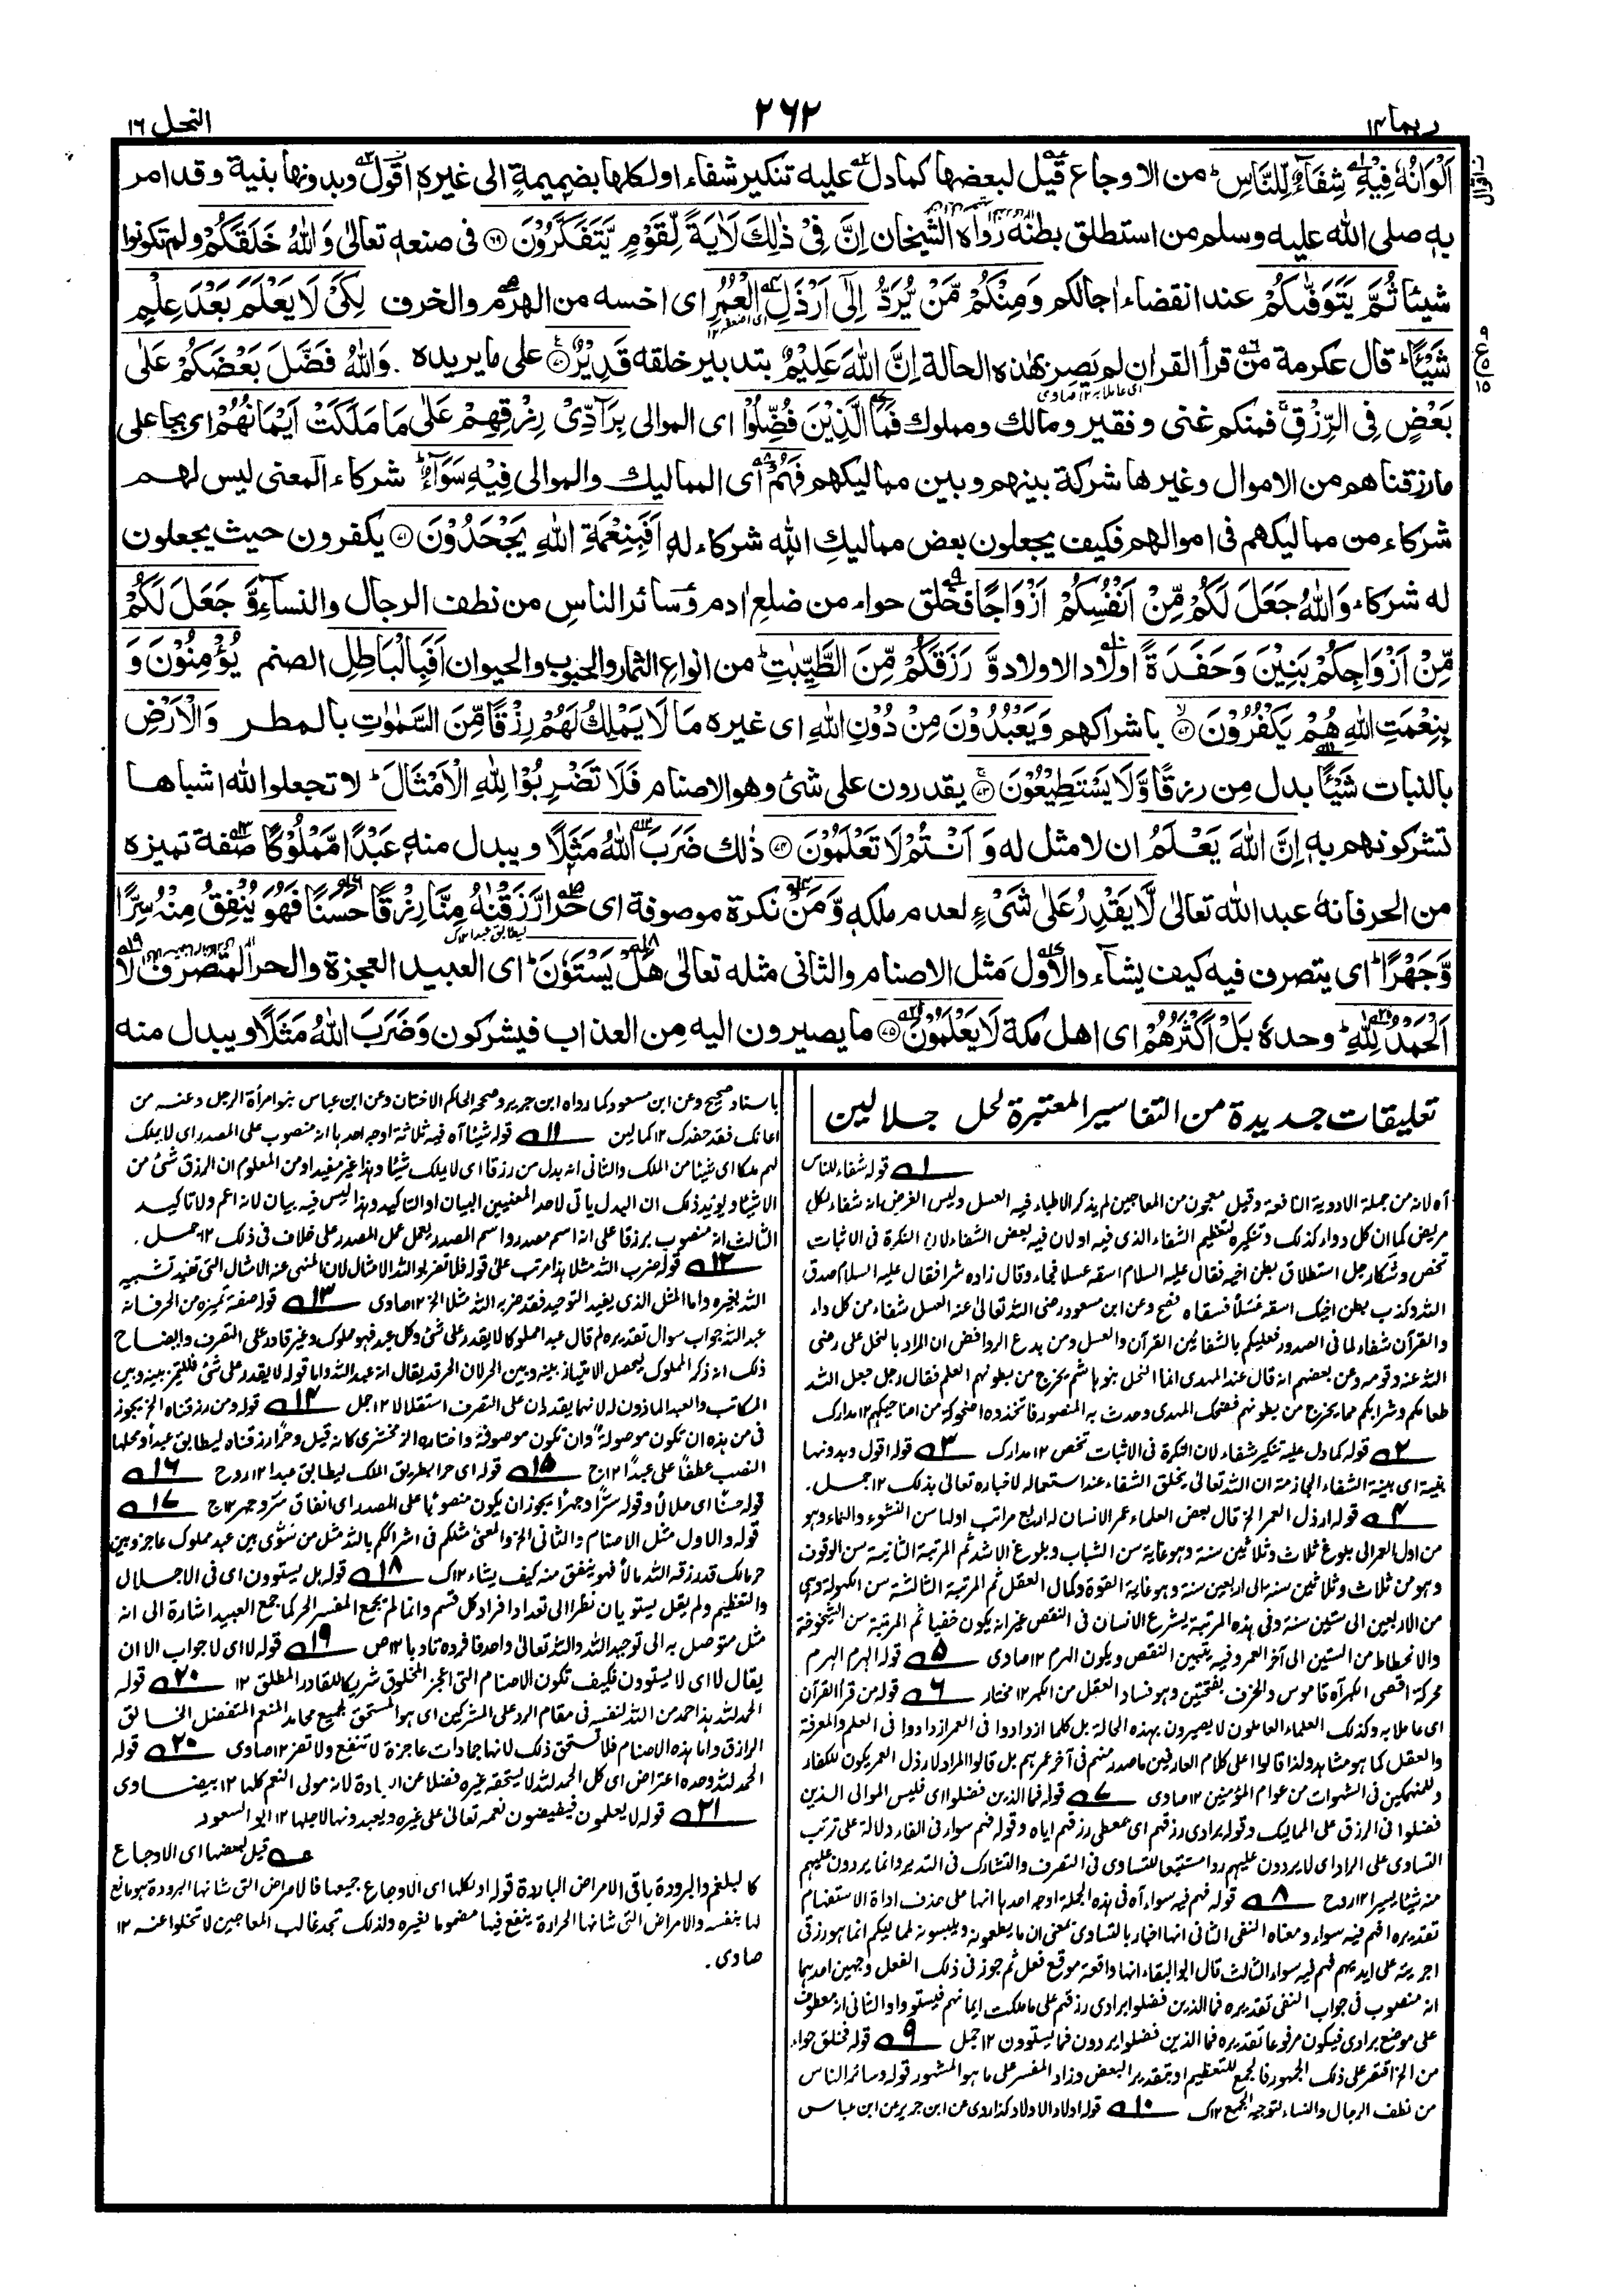 ربما ١٤
٢٦٢
النحل ١٦
اَلْوَانُهٗ فِيْهِ شِفَآءٌ لِّلنَّاسِ من الاوجاع قيل لبعضها كما دل عليه تنكير شفاء او لكلها بضميمة الى غيره اقول وبدونها بنية وقد امر
به صلى الله عليه وسلم من استطلق بطنه رواه الشيخان اِنَّ فِيْ ذٰلِكَ لَاٰيَةً لِّقَوْمٍ يَّتَفَكَّرُوْنَ ٦٩ فى صنعه تعالىٰ وَاللهُ خَلَقَكُمْ ولم تكونوا
شيئا ثُمَّ يَتَوَفّٰىكُمْ عند انقضاء اجالكم وَمِنْكُمْ مَّنْ يُّرَدُّ اِلٰٓى اَرْذَلِ الْعُمُرِ اى اخسه من الهرم والخرف لِكَيْ لَا يَعْلَمَ بَعْدَ عِلْمٍ
شَيْـًٔا قال عكرمة من قرأ القران لم يصر بهذه الحالة اِنَّ اللهَ عَلِيْمٌ بتدبير خلقه قَدِيْرٌ ٧٠ على ما يريده . وَاللهُ فَضَّلَ بَعْضَكُمْ عَلٰى
بَعْضٍ فِي الرِّزْقِ فمنكم غنى و فقير ومالك ومملوك فَمَا الَّذِيْنَ فُضِّلُوْا اى الموالى بِرَآدِّيْ رِزْقِهِمْ عَلٰى مَا مَلَكَتْ اَيْمَانُهُمْ اى بجاعلى
ما رزقناهم من الاموال وغيرها شركة بينهم وبين مماليكهم فَهُمْ اى المماليك والموالى فِيْهِ سَوَآءٌ شركاء المعنى ليس لهم
شركاء من مماليكهم فى اموالهم فكيف يجعلون بعض مماليك الله شركاء له اَفَبِنِعْمَةِ اللهِ يَجْحَدُوْنَ ٧١ يكفرون حيث يجعلون
له شركاء وَاللهُ جَعَلَ لَكُمْ مِّنْ اَنْفُسِكُمْ اَزْوَاجًا فخلق حواء من ضلع ادم وسائر الناس من نطف الرجال والنساء وَّجَعَلَ لَكُمْ
مِّنْ اَزْوَاجِكُمْ بَنِيْنَ وَحَفَدَةً اولاد الاولاد وَّرَزَقَكُمْ مِّنَ الطَّيِّبٰتِ من انواع الثمار والحبوب والحيوان اَفَبِالْبَاطِلِ الصنم يُؤْمِنُوْنَ وَ
بِنِعْمَتِ اللهِ هُمْ يَكْفُرُوْنَ ٧٢ باشراكهم وَيَعْبُدُوْنَ مِنْ دُوْنِ اللهِ اى غيره مَا لَا يَمْلِكُ لَهُمْ رِزْقًا مِّنَ السَّمٰوٰتِ بالمطر وَالْاَرْضِ
بالنبات شَيْـًٔا بدل من رزقا وَّلَا يَسْتَطِيْعُوْنَ ٧٣ يقدرون على شئ وهو الاصنام فَلَا تَضْرِبُوْا لِلّٰهِ الْاَمْثَالَ لا تجعلوا لله اشباها
تشركونهم به اِنَّ اللهَ يَعْلَمُ ان لا مثل له وَاَنْتُمْ لَا تَعْلَمُوْنَ ٧٤ ذٰلك ضَرَبَ اللهُ مَثَلًا ويبدل منه عَبْدًا مَّمْلُوْكًا صفة تميزه
من الحر فانه عبد الله تعالىٰ لَّا يَقْدِرُ عَلٰى شَيْءٍ لعدم ملكه وَّمَنْ نكرة موصوفة اى حرا رَّزَقْنٰهُ مِنَّا رِزْقًا حَسَنًا فَهُوَ يُنْفِقُ مِنْهُ سِرًّا
وَّجَهْرًا اى يتصرف فيه كيف يشاء والاول مثل الاصنام والثانى مثله تعالىٰ هَلْ يَسْتَوٗنَ اى العبيد العجزة والحر المتصرف لا
اَلْحَمْدُ لِلّٰهِ وحده بَلْ اَكْثَرُهُمْ اى اهل مكة لَا يَعْلَمُوْنَ ٧٥ ما يصيرون اليه من العذاب فيشركون وَضَرَبَ اللهُ مَثَلًا ويبدل منه
تعليقات جديدة من التفاسير المعتبرة لحل جلالين
١ قوله شفاء للناس
آه لانه من جملة الادوية النافعة وقيل معجون من المعاجين لم يذكر الاطباء فيه العسل وليس الغرض انه شفاء لكل
مريض كما ان كل دواء كذلك وتنكيره لتعظيم الشفاء الذى فيه او لان فيه بعض الشفاء لان النكرة فى الاثبات
تخص وشكا رجل استطلاق بطن اخيه فقال عليه السلام اسقه عسلا فجاء وقال زاده شرا فقال عليه السلام صدق
الله وكذب بطن اخيك اسقه عسلا فسقاه فصح وعن ابن مسعود رضى الله تعالى عنه العسل شفاء من كل داء
والقرآن شفاء لما فى الصدور فعليكم بالشفائين القرآن والعسل ومن بدع الروافض ان المراد بالنحل على رضى
الله عنه وقومه وعن بعضهم انه قال عند المهدى انما النحل بنو هاشم يخرج من بطونهم العلم فقال رجل جعل الله
طعامكم وشرابكم مما يخرج من بطونهم فضحك المهدى وحدث به المنصور فاتخذوه اضحوكة من اضاحيكهم ١٢ مدارك
٢ قوله كما دل عليه تنكير شفاء لان النكرة فى الاثبات تخص ١٢ مدارك ٣ قوله اقول وبدونها
بنيته اى بنية الشفاء الجازمة ان الله تعالى يخلق الشفاء عند استعماله لاخباره تعالى بذلك ١٢ جمل .
٤ قوله ارذل العمر الخ قال بعض العلماء عمر الانسان له اربع مراتب اولها سن النشوء والنماء وهو
من اول العمر الى بلوغ ثلاث وثلاثين سنة وهو غاية سن الشباب وبلوغ الاشد ثم المرتبة الثانية سن الوقوف
وهو من ثلاث وثلاثين سنة الى اربعين سنة وهو غاية القوة وكمال العقل ثم المرتبة الثالثة سن الكهولة وهى
من الاربعين الى ستين سنة وفى هذه المرتبة يشرع الانسان فى النقص غير انه يكون خفيا ثم المرتبة سن الشيخوخة
والانحطاط من الستين الى آخر العمر وفيه يتبين النقص ويكون الهرم ١٢ صاوى ٥ قوله الهرم الهرم
محركة اقصى الكبر آه قاموس والخرف بفتحتين وهو فساد العقل من الكبر ١٢ مختار ٦ قوله من قرأ القرآن
اى عاملا به وكذلك العلماء العاملون لا يصيرون بهذه الحالة بل كلما ازدادوا فى العمر ازدادوا فى العلم والمعرفة
والعقل كما هو مشاهد ولذا قالوا اعلى كلام العارفين ما صدر منهم فى آخر عمرهم بل قالوا المراد لارذل العمر يكون للكفار
وللمنهمكين فى الشهوات من عوام المؤمنين ١٢ صاوى ٧ قوله فما الذين فضلوا اى فليس الموالى الذين
فضلوا فى الرزق على المماليك وقوله برادى رزقهم اى معطى رزقهم اياه وقوله فهم سواء فى الفاء دلالة على ترتب
التساوى على الراد اى لا يردون عليهم ردا مستتبعا للتساوى فى التصرف والتشارك فى التدبير وانما يردون عليهم
منه شيئا يسيرا ١٢ روح ٨ قوله فهم فيه سواء آه فى هذه الجملة اوجه احدها انها على حذف اداة الاستفهام
تقديره افهم فيه سواء ومعناه النفى الثانى انها اخبار بالتساوى بمعنى ان ما يطعمونه ويلبسونه لمماليكهم انما هو رزقى
اجريته على ايديهم فهم فيه سواء الثالث قال ابو البقاء انها واقعة موقع فعل ثم جوز فى ذلك الفعل وجهين احدهما
انه منصوب فى جواب النفى تقديره فما الذين فضلوا برادى رزقهم على ما ملكت ايمانهم فيستووا والثانى انه معطوف
على موضع برادى فيكون مرفوعا تقديره فما الذين فضلوا يردون فما يستوون ١٢ جمل ٩ قوله فخلق حواء
من الخ اقتصر على ذلك الجمهور فالجمع للتعظيم او بتقدير البعض وزاد المفسر على ما هو المشهور قوله وسائر الناس
من نطف الرجال والنساء لتوجه الجمع ١٢ ك ١٠ قوله اولاد الاولاد كذا روى عن ابن جرير عن ابن عباس
باسناد صحيح وعن ابن مسعود كما رواه ابن جرير وصححه الحاكم الاختان وعن ابن عباس بنو امرأة الرجل وعنه من
اعانك فقد حفدك ١٢ كمالين ١١ قوله شيئا آه فيه ثلاثة اوجه احدها انه منصوب على المصدر اى لا يملك
لهم ملكا اى شيئا من الملك والثانى انه بدل من رزقا اى لا يملك شيئا وهذا غير مفيد اذ من المعلوم ان الرزق شئ من
الاشياء ويؤيد ذلك ان البدل ياتى لاحد المعنيين البيان او التاكيد وهذا ليس فيه بيان لانه اعم ولا تاكيد
الثالث انه منصوب برزقا على انه اسم مصدر واسم المصدر يعمل عمل المصدر على خلاف فى ذلك ١٢ جمل .
١٢ قوله ضرب الله مثلا هذا مرتب على قوله فلا تضربوا لله الامثال لان المنهى عنه الامثال التى تفيد تشبيه
الله بغيره واما المثل الذى يفيد التوحيد فقد ضربه الله مثلا الخ ١٢ صاوى ١٣ قوله صفة تميزه من الحر فانه
عبد الله جواب سوال تقديره لم قال عبدا مملوكا لا يقدر على شئ وكل عبد فهو مملوك وغير قادر على التصرف وايضاح
ذلك انه ذكر المملوك ليحصل الامتياز بينه وبين الحر لان الحر قد يقال انه عبد الله واما قوله لا يقدر على شئ فلتميز بينه وبين
المكاتب والعبد الماذون له لانهما يقدران على التصرف استقلالا ١٢ جل ١٤ قوله ومن رزقناه الخ يجوز
فى من هذه ان تكون موصولة وان تكون موصوفة واختاره الزمخشرى كانه قيل وحرا رزقناه ليطابق عبدا ومحلها
النصب عطفا على عبدا ١٢ ج ١٥ قوله اى حرا بطريق الملك ليطابق عبدا ١٢ روح ١٦
قوله حسنا اى حلالا وقوله سرا وجهرا يجوز ان يكون منصوبا على المصدر اى انفاق سر وجهر ١٢ ج ١٧
قوله والاول مثل الاصنام والثانى الخ والمعنى مثلكم فى اشراككم بالله مثل من سوى بين عبد مملوك عاجز وبين
حر مالك قد رزقه الله مالا فهو ينفق منه كيف يشاء ١٢ ك ١٨ قوله هل يستوون اى فى الاجلال
والتعظيم ولم يقل يستويان نظرا الى تعداد افراد كل قسم وانما لم يجمع المفسر الحر كما جمع العبيد اشارة الى انه
مثل متوصل به الى توحيد الله والله تعالى واحد فافرده تادبا ١٢ ص ١٩ قوله لا اى لا جواب الا ان
يقال لا اى لا يستوون فكيف تكون الاصنام التى اعجز المخلوق شريكا للقادر المطلق ١٢ ٢٠ قوله
الحمد لله هذا حمد من الله لنفسه فى مقام الرد على المشركين اى هو المستحق لجميع محامد المنعم المتفضل الخالق
الرازق واما هذه الاصنام فلا تستحق ذلك لانها جمادات عاجزة لا تنفع ولا تضر ١٢ صاوى ٢٠ قوله
الحمد لله وحده اعتراض اى كل الحمد لله لا يستحقه غيره فضلا عن العبادة لانه مولى النعم كلها ١٢ بيضاوى
٢١ قوله لا يعلمون فيضيفون نعمه تعالى على غيره ويعبدونها لاجلها ١٢ ابو السعود
عه قيل لبعضها اى الاوجاع
كالبلغم والبرودة باقى الامراض الباردة قوله او لكلها اى الاوجاع جميعها فالامراض التى شانها البرودة هو مانع
لها بنفسه والامراض التى شانها الحرارة ينفع فيها مضموما لغيره ولذلك تجد غالب المعاجين لا تخلوا عنه ١٢
صاوى .